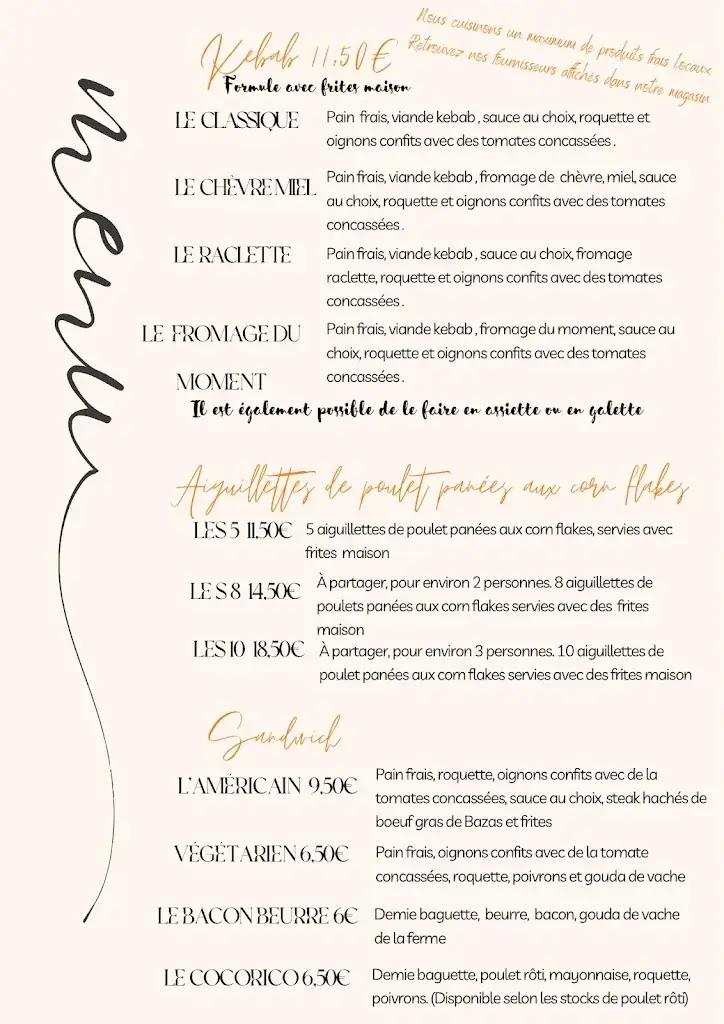 Nous cuisinons un maximum de produits frais locaux
Retrouvez nos fournisseurs affichés dans notre magasin
menu
Kebab 11,50€
Formule avec frites maison
LE CLASSIQUE
Pain frais, viande kebab , sauce au choix, roquette et
oignons confits avec des tomates concassées .
LE CHÈVRE MIEL
Pain frais, viande kebab , fromage de chèvre, miel, sauce
au choix, roquette et oignons confits avec des tomates
concassées .
LE RACLETTE
Pain frais, viande kebab , sauce au choix, fromage
raclette, roquette et oignons confits avec des tomates
concassées .
LE FROMAGE DU
MOMENT
Pain frais, viande kebab , fromage du moment, sauce au
choix, roquette et oignons confits avec des tomates
concassées .
Il est également possible de le faire en assiette ou en galette
Aiguillettes de poulet panées aux corn flakes
LES 5 11,50€
5 aiguillettes de poulet panées aux corn flakes, servies avec
frites maison
LE S 8 14,50€
À partager, pour environ 2 personnes. 8 aiguillettes de
poulets panées aux corn flakes servies avec des frites
maison
LES 10 18,50€
À partager, pour environ 3 personnes. 10 aiguillettes de
poulet panées aux corn flakes servies avec des frites maison
Sandwich
L'AMÉRICAIN 9,50€
Pain frais, roquette, oignons confits avec de la
tomates concassées, sauce au choix, steak hachés de
boeuf gras de Bazas et frites
VÉGÉTARIEN 6,50€
Pain frais, oignons confits avec de la tomate
concassées, roquette, poivrons et gouda de vache
LE BACON BEURRE 6€
Demie baguette, beurre, bacon, gouda de vache
de la ferme
LE COCORICO 6,50€
Demie baguette, poulet rôti, mayonnaise, roquette,
poivrons. (Disponible selon les stocks de poulet rôti)